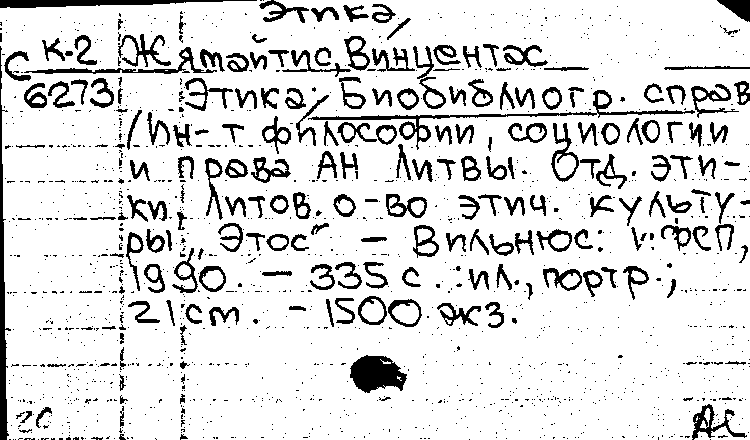 Этика
С К-2 Жямайтис, Винцентас
6273 Этика: Биобиблиогр. справ
/ Ин-т философии, социологии
и права АН Литвы. Отд. эти-
ки, Литов. о-во этич. культу-
ры „Этос“ – Вильнюс: ИФСП,
1990. – 335 с. : ил., портр.;
21 ст. – 1500 экз.